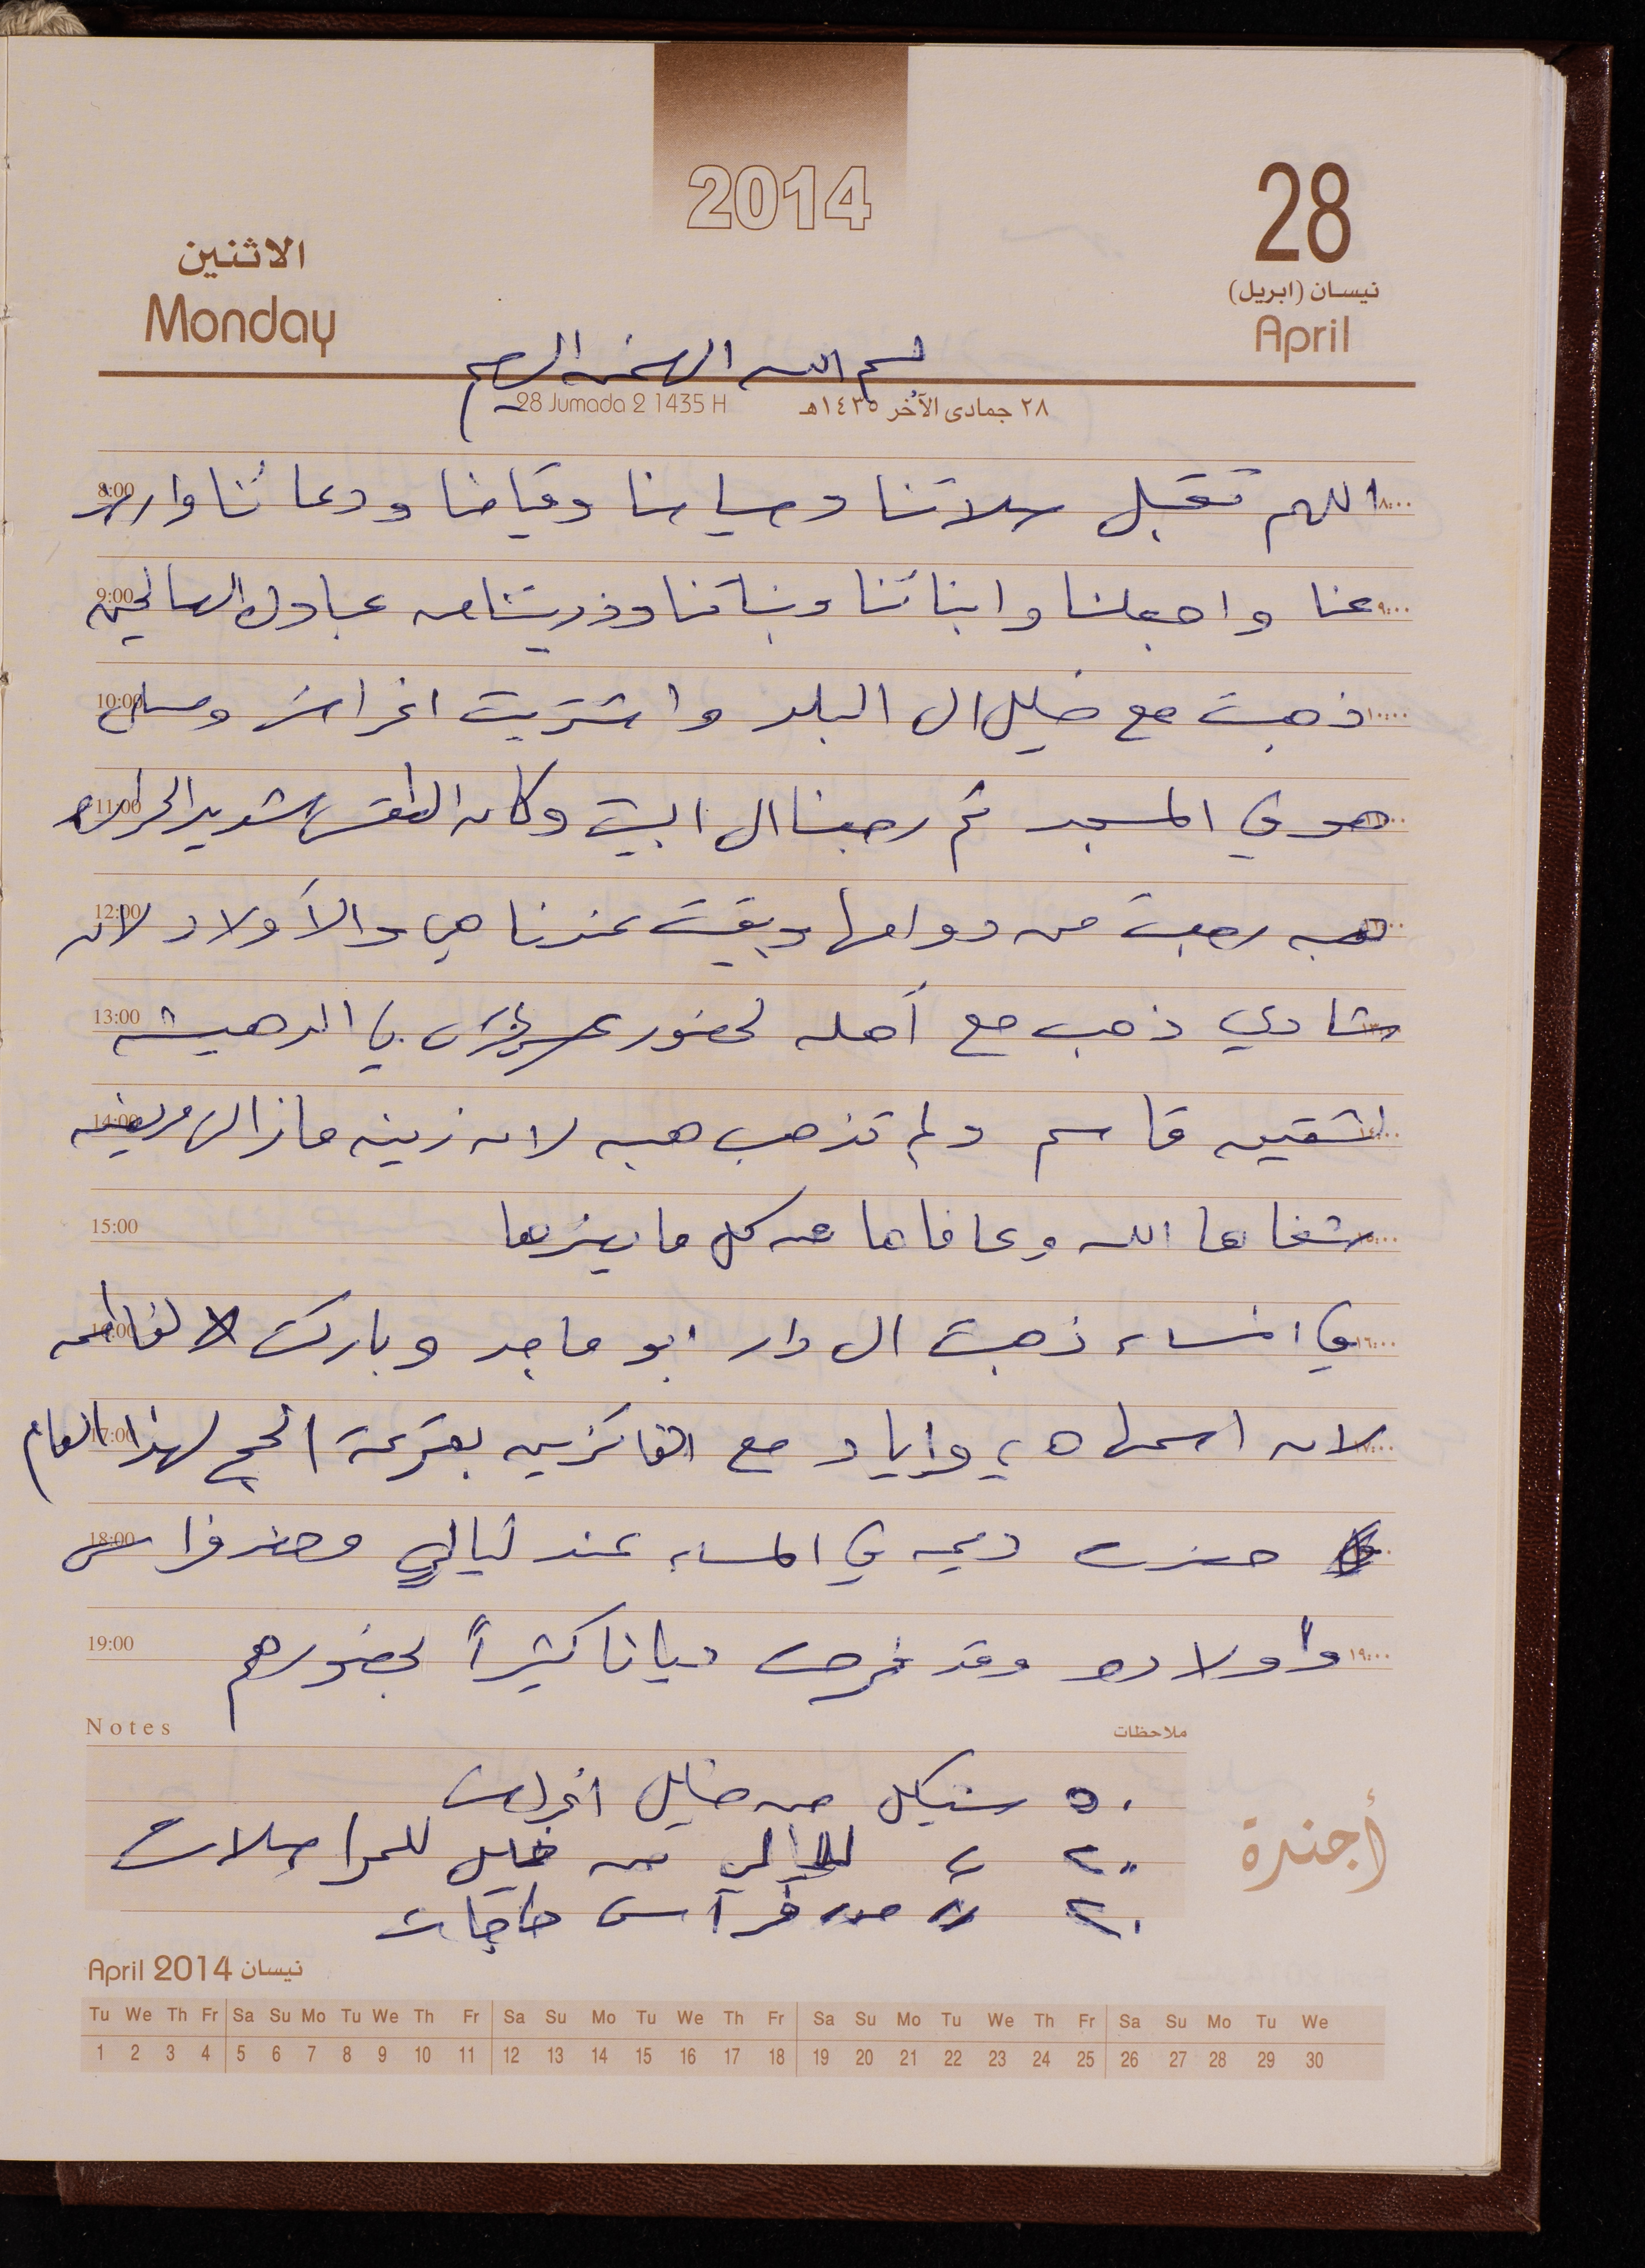 2014
28
نيسان (ابريل)
April
الاثنين
Monday
بسم الله الرحمن الرحيم
28 Jumada 2 1435 H ٢٨ جمادى الآخر ١٤٣٥هـ
8:00 ٨:٠٠ اللهم تقبل صلاتنا وصيامنا وقيامنا ودعائنا وارض
9:00 ٩:٠٠ عنا واجعلنا وابنائنا وبناتنا وذريتنا من عبادك الصالحين
10:00 ١٠:٠٠ ذهبت مع خليل ال البلد واشتريت اغراض وصلى
11:00 ١١:٠٠ هو في المسجد ثم رجعنا ال البيت وكان الطقس شديد الحراره
12:00 ١٢:٠٠ هبه رجعت من دوامها وبقيت عندنا هي والأولاد لان
13:00 ١٣:٠٠ شادي ذهب مع أهله لحضور عرس في الدهيشه
14:00 ١٤:٠٠ لشقيق قاسم ولم تذهب هبه لان زينه مازالت مريضه
15:00 ١٥:٠٠ شفاها الله وعافاها من كل ما يضرها
16:00 ١٦:٠٠ في المساء ذهبت ال دار ابو ماجد وباركت لفاطمه
17:00 ١٧:٠٠ لان اسمها هي واياد مع الفائزين بقرعة الحج لهذا العام
18:00 حضرت ديمه في المساء عند ليالي وحضر فراس
19:00 ١٩:٠٠ وأولاده وقد فرحت ديانا كثيراً بحضورهم
Notes ملاحظات
٥٠ شيكل من خليل اغراض
٢٠ " لليالي من خليل للمواصلات
٢٠ " من فراس حاجات
أجندة
April 2014 نيسان
Tu We Th Fr Sa Su Mo Tu We Th Fr Sa Su Mo Tu We Th Fr Sa Su Mo Tu We Th Fr Sa Su Mo Tu We
1 2 3 4 5 6 7 8 9 10 11 12 13 14 15 16 17 18 19 20 21 22 23 24 25 26 27 28 29 30